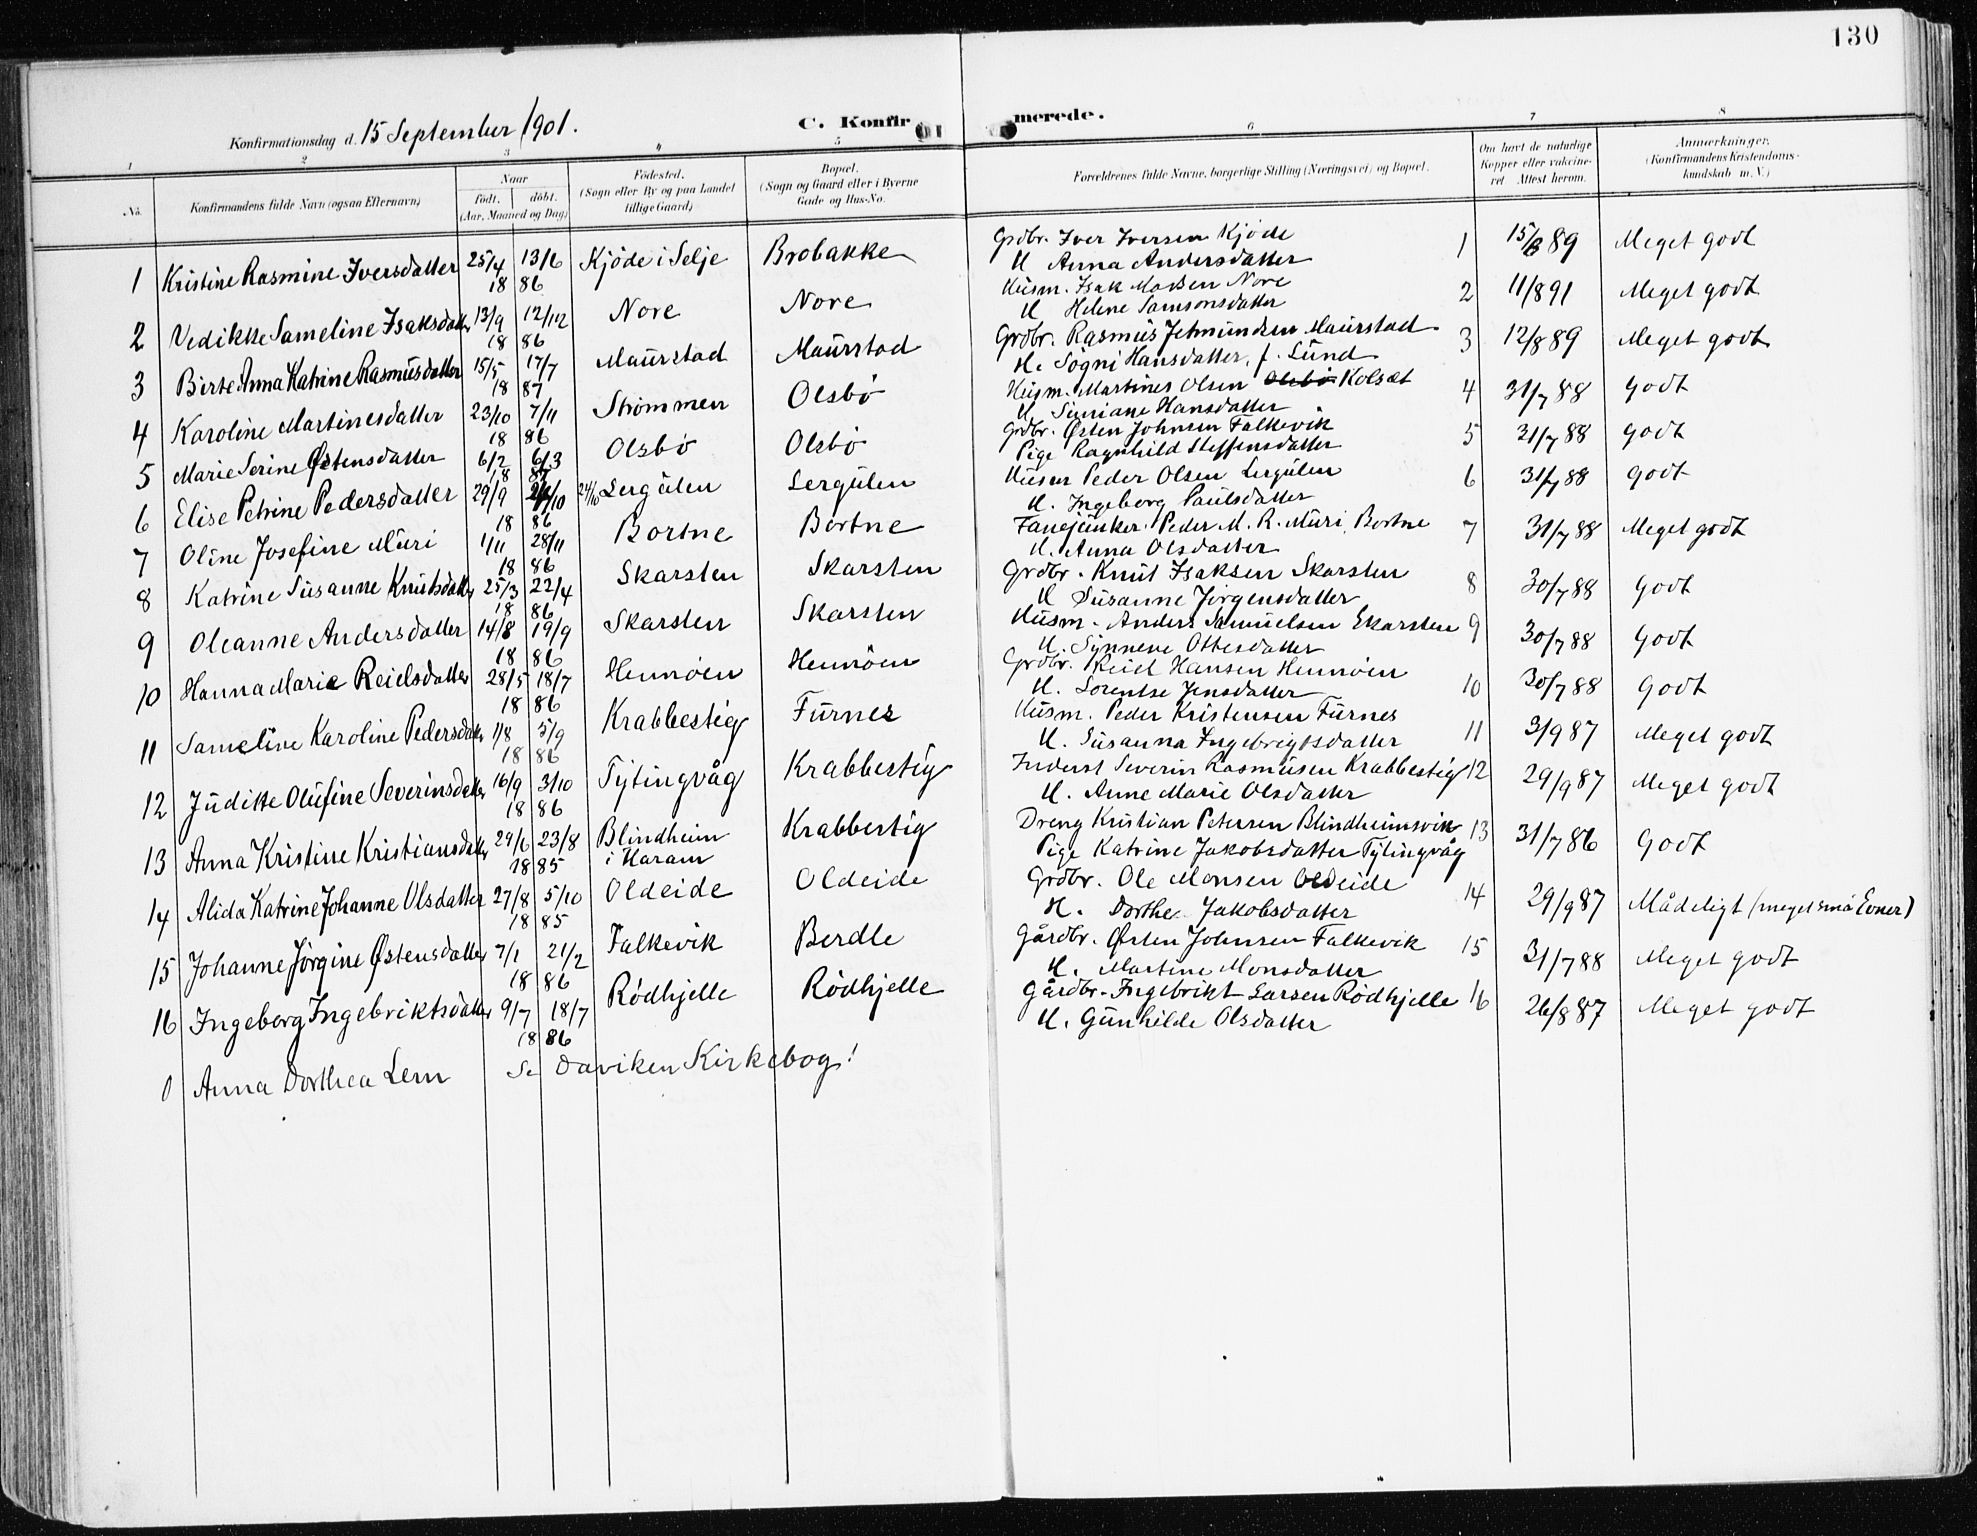 130
Konfirmationsdag d. 15 September 1901.
C. Konfirmerede.
1 2 3 4 5 6 7 8
No. Konfirmandens fulde Navn (ogsaa Efternavn) Naar født. døbt. (Aar, Maaned og Dag) Fødested. (Sogn eller By og paa Landet tillige Gaard) Bopæl. (Sogn og Gaard eller i Byerne Gade og Hus-No. Forældrenes fulde Navne, borgerlige Stilling (Næringsvei) og Bopæl. Om havt de naturlige Kopper eller vakcineret Attest herom. Anmærkninger. (Konfirmandens Kristendomskundskab m. V.)
1 Kristine Rasmine Iversdatter 25/4 13/6 1886 Kjöde i Selje Brobakke Grdbr. Iver Iversen Kjöde 1 15/8 89 Meget godt
H Anna Andersdatter
2 Vedikke Sameline Isaksdatter 13/9 12/12 1886 Nore Nore Husm. Isak Madsen Nore 2 11/8 91 Meget godt
H Helene Samsonsdatter
3 Birte Anna Katrine Rasmusdatter 15/5 17/7 1887 Maurstad Maurstad Grdbr. Rasmus Jetmundsen Maurstad 3 12/8 89 Meget godt
H. Søgni Hansdatter, f. Lund
4 Karoline Martinesdatter 23/10 7/11 1886 Strømmen Olsbö Husm. Martines Olsen Olsbö Kolset 4 31/7 88 Godt
H. Hansdatter
5 Marie Serine Østensdatter 6/2 6/3 1887 Olsbö Olsbö Grdbr. Østen Johnsen Falkevik 5 31/7 88 Godt
Pige Ragnhild Steffensdatter
6 Elise Petrine Pedersdatter 29/9 24/10 1886 24/10 Lergulen Lergulen Husm Peder Olsen Lergulen 6 31/7 88 Godt
H. Ingeborg Paulsdatter
7 Oline Josefine Muri 1/11 28/11 1886 Bortne Bortne Fanejunker Peder M. R. Muri, Bortne 7 31/7 88 Meget godt
H. Anna Olsdatter
8 Katrine Susanne Knutsdatter 25/3 22/4 1886 Skarsten Skarsten Grdbr. Knut Isaksen Skarsten 8 30/7 88 Godt
H Susanne Jörgensdatter
9 Oleanne Andersdatter 14/8 19/9 1886 Skarsten Skarsten Husm. Anders Samuelsen Skarsten 9 30/7 88 Godt
H. Synneve Ottesdatter
10 Hanna Marie Reielsdatter 28/5 18/7 1886 Hennöen Hennöen Grdbr. Reiel Hansen Hennöen 10 30/7 88 Godt
H. Sorentse Jensdatter
11 Sameline Karoline Pedersdatter 1/8 5/9 1886 Krabbestig Furnes Husm. Peder Kristensen Furnes 11 3/9 87 Meget godt
H. Susanna Ingebrigtsdatter
12 Juditte Olufine Severinsdatter 16/9 3/10 1886 Tytingvåg Krabbestig Inderst Severin Rasmusen Krabbestig 12 29/9 87 Meget godt
H. Anne Marie Olsdatter
13 Anna Kristine Kristiansdatter 29/6 23/8 1885 Blindheim i Haram Krabbestig Dreng Kristian Petersen Blindheimsvik 13 31/7 86 Godt
Pige Katrine Jakobsdatter Tytingvåg
14 Alida Katrine Johanne Olsdatter 27/8 5/10 1885 Oldeide Oldeide Grdbr. Ole Monsen Oldeide 14 29/9 87 Mådeligt (meget små Evner)
H. Dorthe Jakobsdatter
15 Johanne Jørgine Østensdatter 7/1 21/2 1886 Falkevik Berdle Gårdbr. Østen Johnsen Falkevik 15 31/7 88 Meget godt
H. Martine Monsdatter
16 Ingeborg Ingebriktsdatter 9/7 18/7 1886 Rødhjelle Rødhjelle Gårdbr. Ingebrikt Larsen Rødhjelle 16 26/8 87 Meget godt
H. Gunhilde Olsdatter
0 Anna Dorthea Lem Se Daviken Kirkebog!